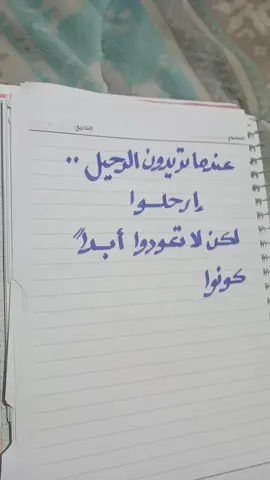 التاريخ
عندما تريدون الرحيل ..
إرحلوا
لكن لا تعودوا أبداً
كونوا